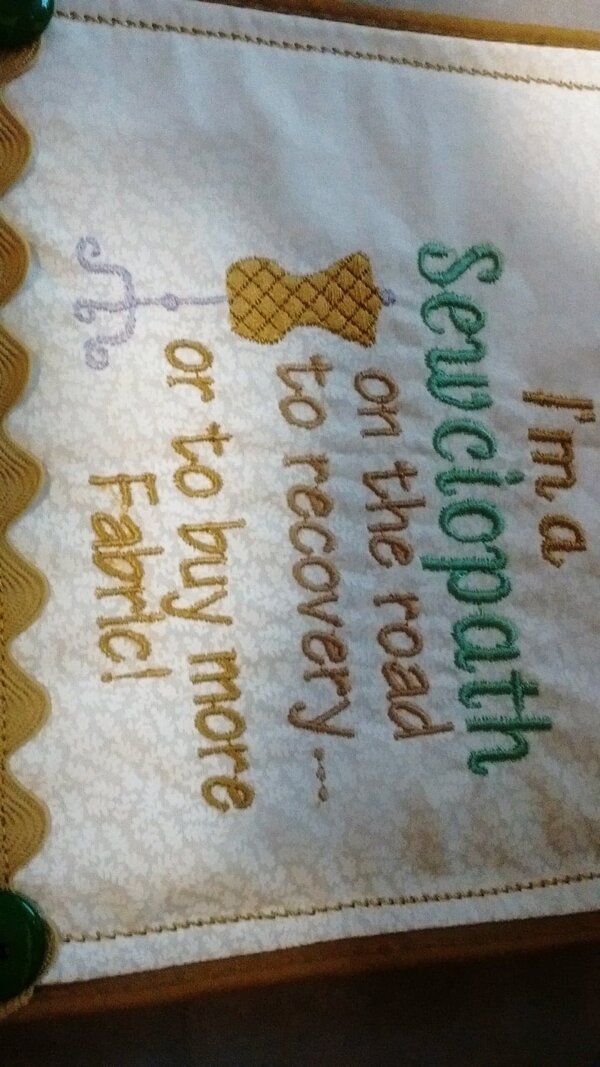 I'm a
Sewciopath
on the road
to recovery...
or to buy more
Fabric!